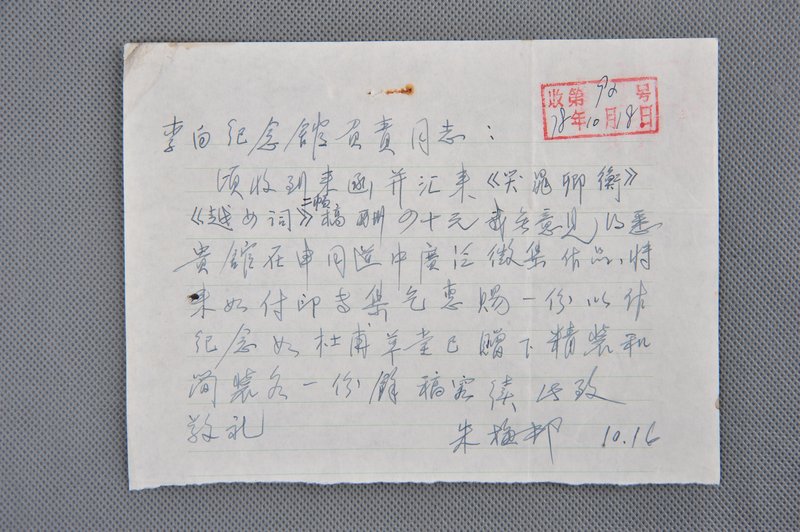 收第92号
78年10月18日
李白纪念馆负责同志：
顷收到来函并汇来《哭晁卿衡》
《越女词》二幅稿酬四十元我无意见得悉
贵馆在申同道中廣泛徵集作品，特
来如付印专集乞惠赐一份以作
纪念如杜甫草堂已赠下精装和
简装各一份馀稿容续此致
敬礼
朱梅邨 10.16